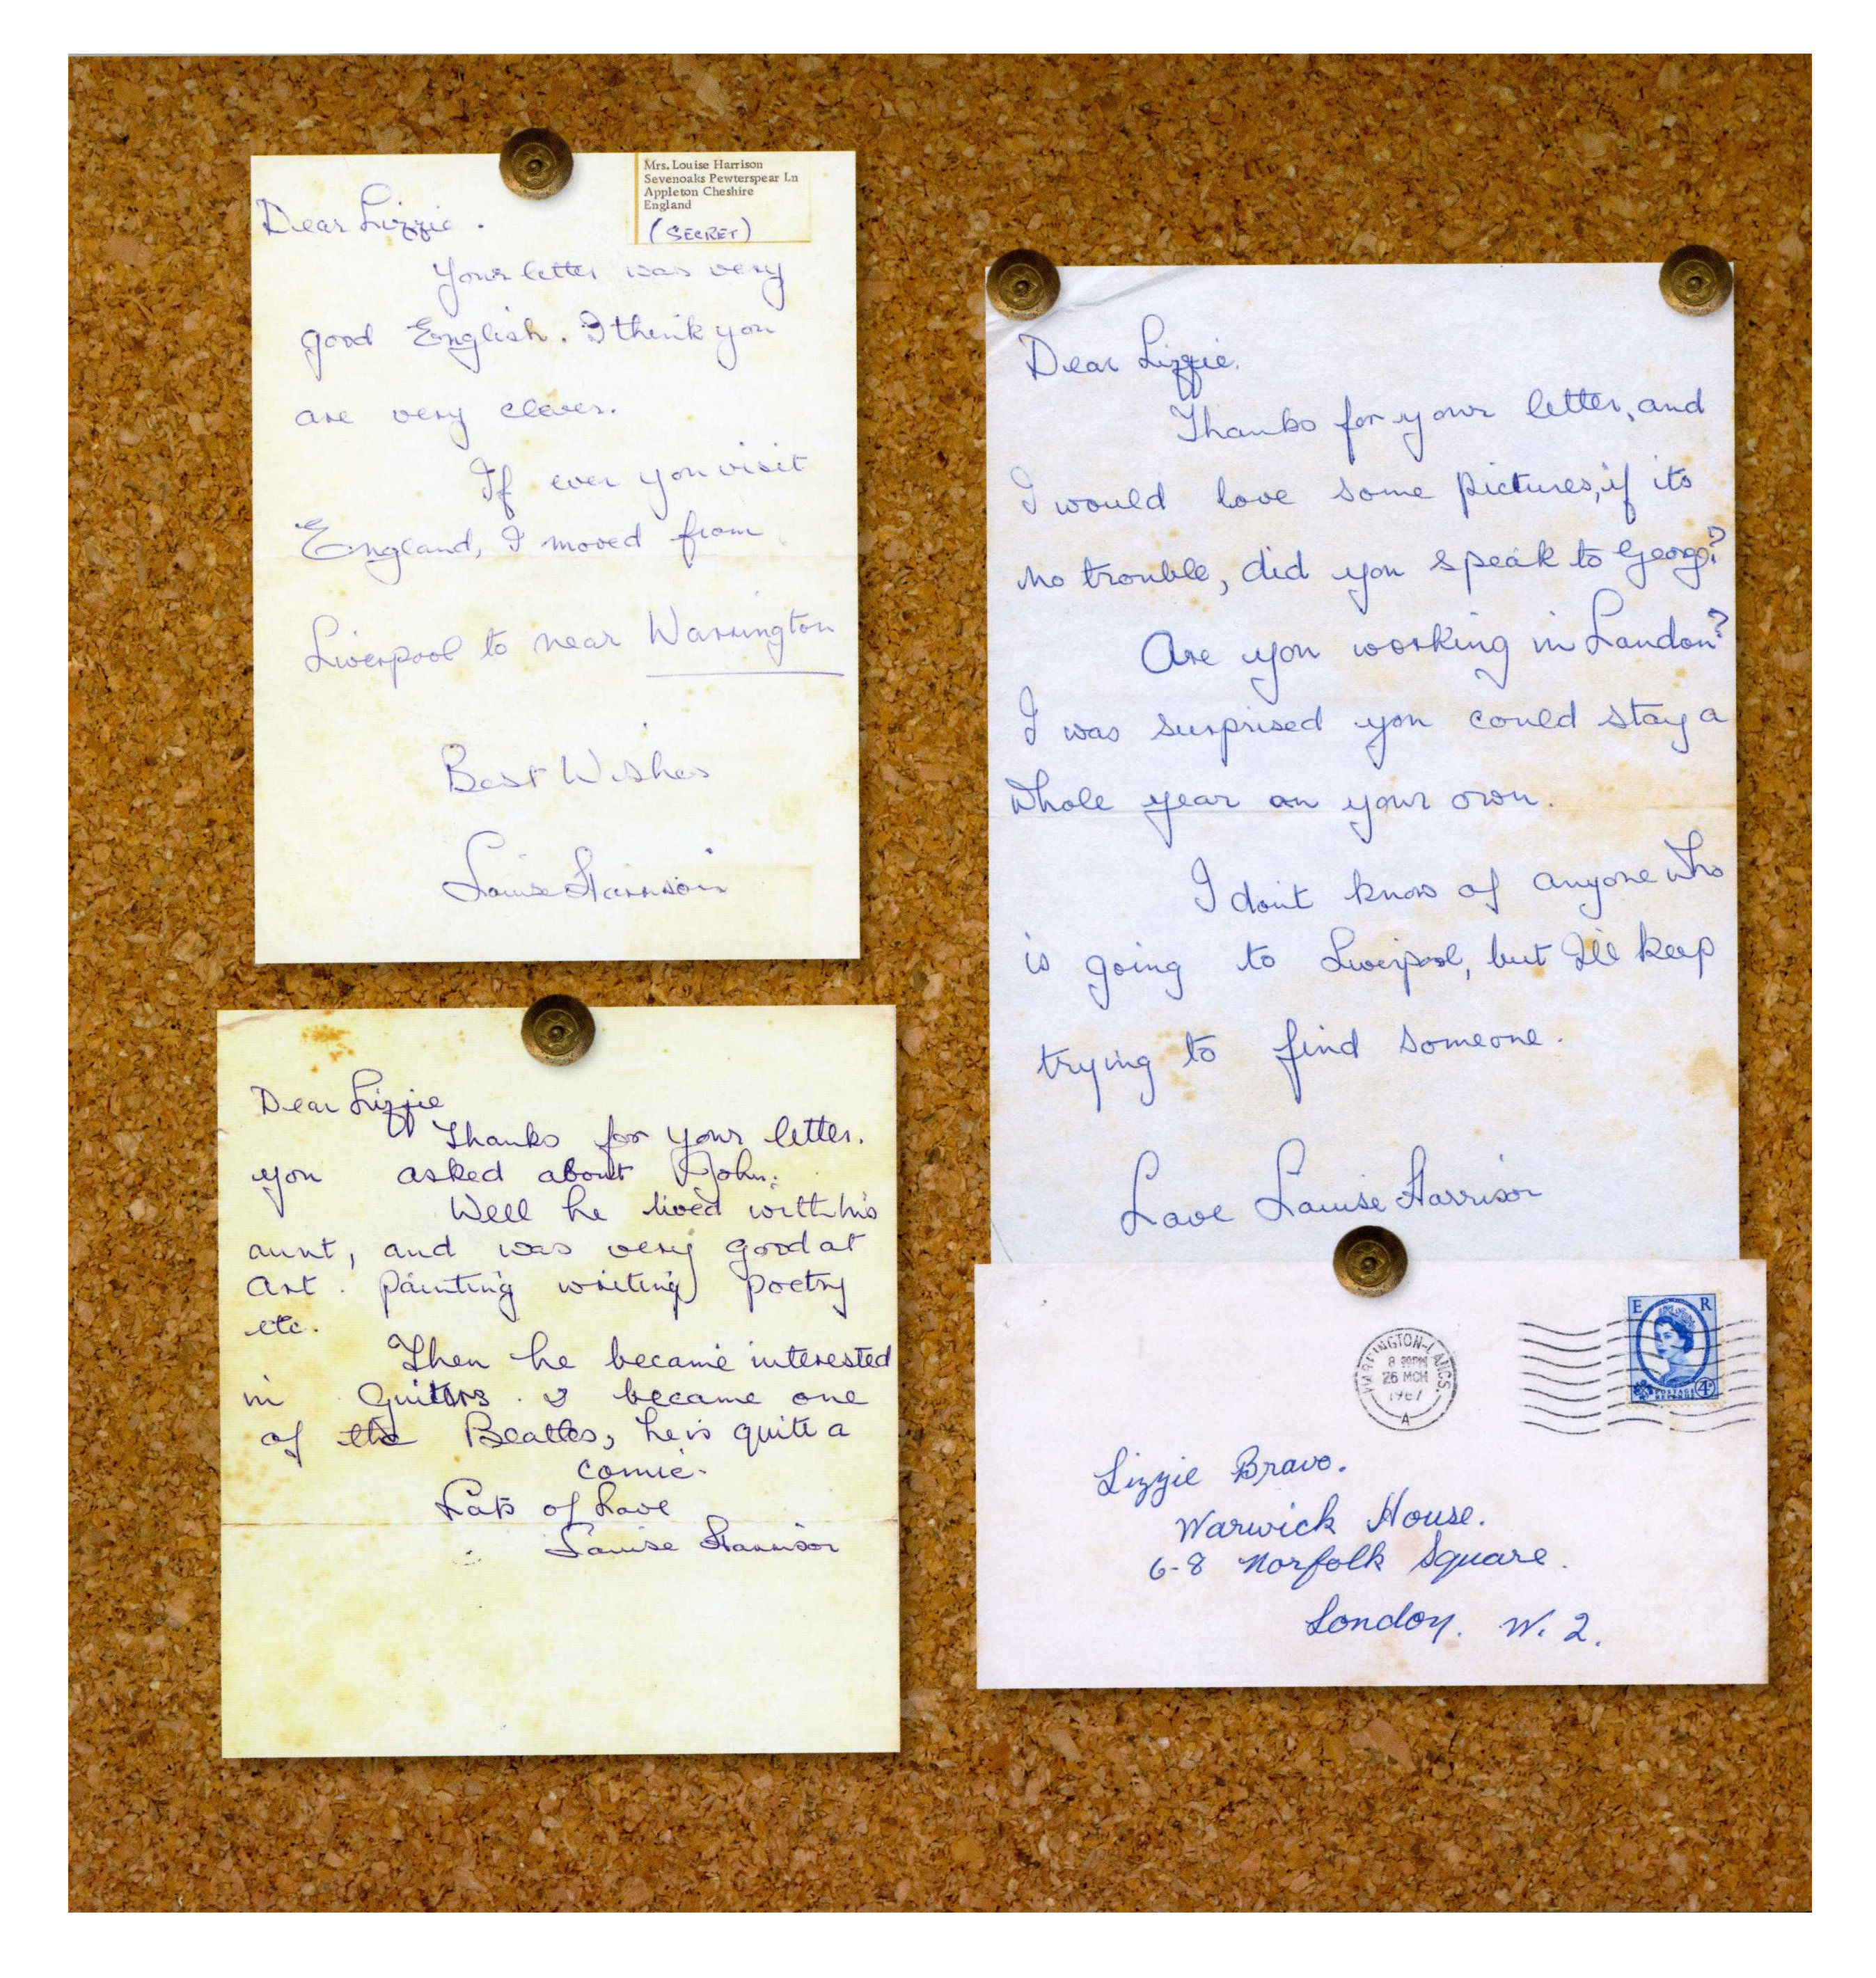 Mrs. Louise Harrison
Sevenoaks Pewterspear Ln
Appleton Cheshire
England
(SECRET)
Dear Lizzie.
Your letter was very
good English. I think you
are very clever.
If ever you visit
England, I moved from
Liverpool to near Warrington
Best Wishes
Louise Harrison
Dear Lizzie
Thanks for your letter.
you asked about John.
Well he lived with his
aunt, and was very good at
Art. painting writing poetry
etc.
Then he became interested
in Guitars. & became one
of the Beatles, he is quite a
comic.
Lots of Love
Louise Harrison
Dear Lizzie.
Thanks for your letter, and
I would love some pictures, if its
no trouble, did you speak to George?
Are you working in London?
I was surprised you could stay a
whole year on your own.
I don't know of anyone who
is going to Liverpool, but I'll keep
trying to find someone.
Love Louise Harrison
E R
POSTAGE
REVENUE
4D
WARRINGTON-LANCS.
8 30PM
26 MCH
1967
A
Lizzie Bravo.
Warwick House.
6-8 Norfolk Square.
London. W. 2.